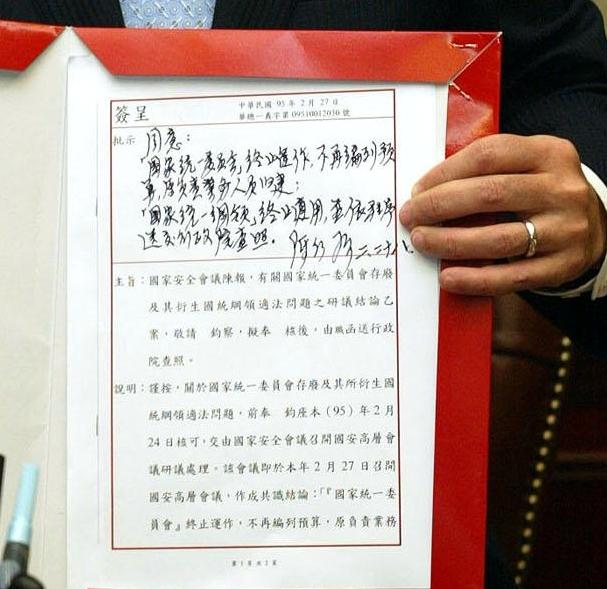 簽呈
中華民國 95 年 2 月 27 日
華總一義字第 09510012030 號
批示
同意：
「國家統一委員會」終止運作，不再編列預
算，原負責業務人員歸建；
「國家統一綱領」終止適用，並依程序
送交行政院查照。 陳水扁 二二十八
主旨：國家安全會議陳報，有關國家統一委員會存廢
及其衍生國統綱領適法問題之研議結論乙
案，敬請 鈞察，擬奉 核後，由職函送行政
院查照。
說明：謹按，關於國家統一委員會存廢及其所衍生國
統綱領適法問題，前奉 鈞座本（95）年 2 月
24 日核可，交由國家安全會議召開國安高層會
議研議處理。該會議即於本年 2 月 27 日召開
國安高層會議，作成共識結論：「『國家統一委
員會』終止運作，不再編列預算，原負責業務
第 1 頁 共 2 頁